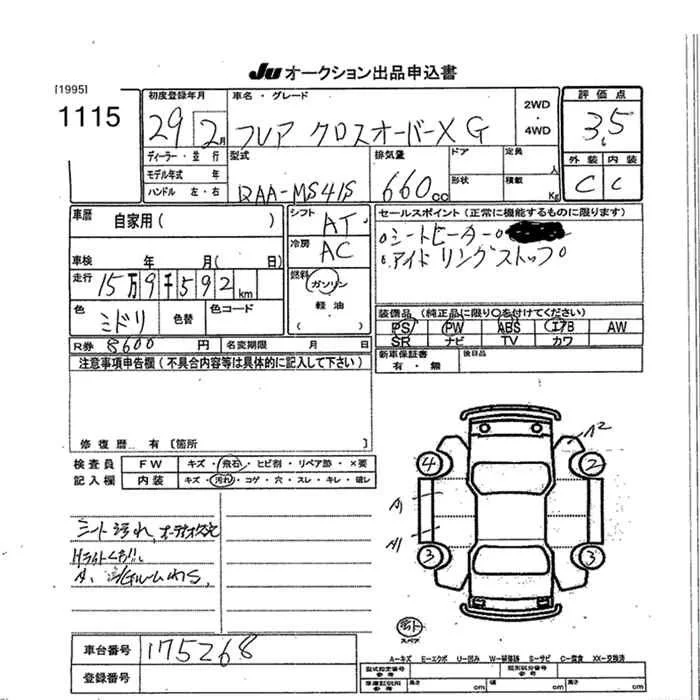 Ju オークション出品申込書
[1995]
1115
初度登録年月
29年2月
車名・グレード
フレア クロスオーバーX G
2WD
・
4WD
評価点
3.5
ディーラー・並行
モデル年式 年
ハンドル 左・右
型式
DAA-MS41S
排気量
660cc
ドア
形状
定員 人
積載 Kg
外装 内装
C C
車歴 自家用( )
車検 年 月( 日)
走行 15万9千592km
色 ミドリ 色替 色コード
シフト
AT
冷房
AC
燃料
ガソリン
・
軽油
セールスポイント(正常に機能するものに限ります)
○シートヒーター○
○アイドリングストップ○
装備品(純正品に限り〇を付けてください)
PS PW ABS エアB AW
SR ナビ TV カワ
R券 8600円 名変期限 月 日
新車保証書
有・無
後日品
注意事項申告欄(不具合内容等は具体的に記入して下さい)
修復歴 有[箇所 ]
検査員
記入欄
FW キズ・飛石・ヒビ割・リペア跡・×要
内装 キズ・汚れ・コゲ・穴・スレ・キレ・破レ
シート汚れ、
A2
4 2
A1
A1
3 3
スペア
車台番号 175268
登録番号
A-キズ E-エクボ U-凹み W-補修跡 S-サビ C-腐食 XX-交換済
型式指定番号
類別区分番号
長さ cm 幅 cm 高さ cm